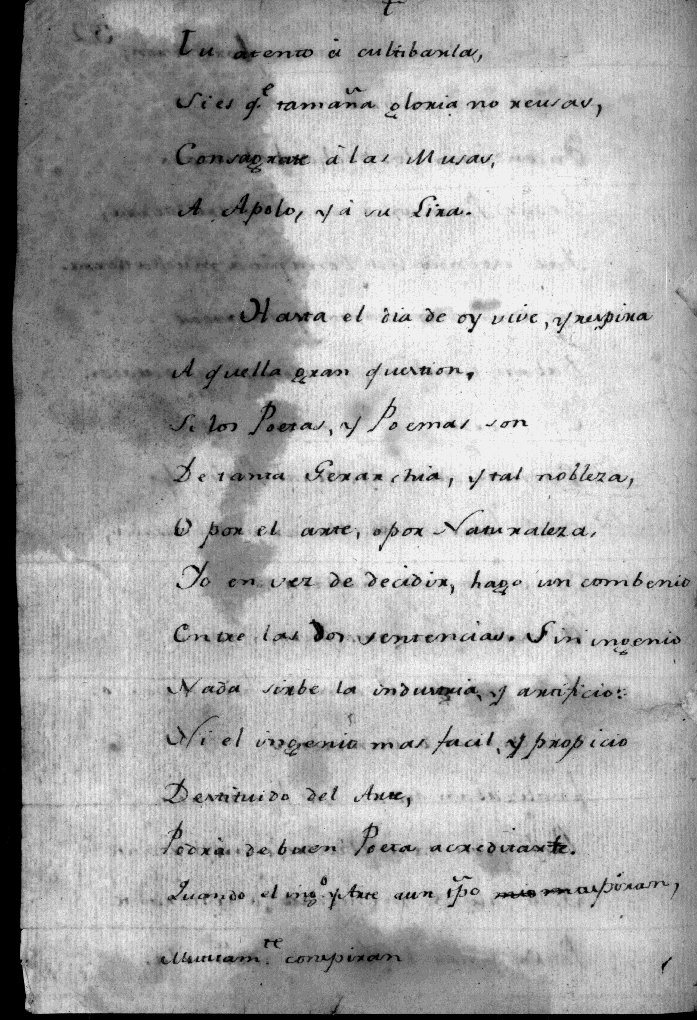 Tu atento à cultibarla,
Si es q.e tamaña gloria no reusas,
Consagrate à las Musas,
A Apolo, y à su Lira.
Hasta el dia de oy vive, y respira
Aquella gran question,
Si los Poetas, y Poemas son
De tanta Gerarchia, y tal nobleza,
O por el arte, o por Naturaleza.
Yo en vez de decidir, hago un combenio
Entre las dos sentencias. Sin ingenio
Nada sirbe la industria, y artificio:
Ni el ingenio mas facil, y propicio
Destituido del Arte,
Podrà de buen Poeta acreditarte.
Quando el ing.o y Arte aun tpõ aspiran,
Mutuam.te conspiran